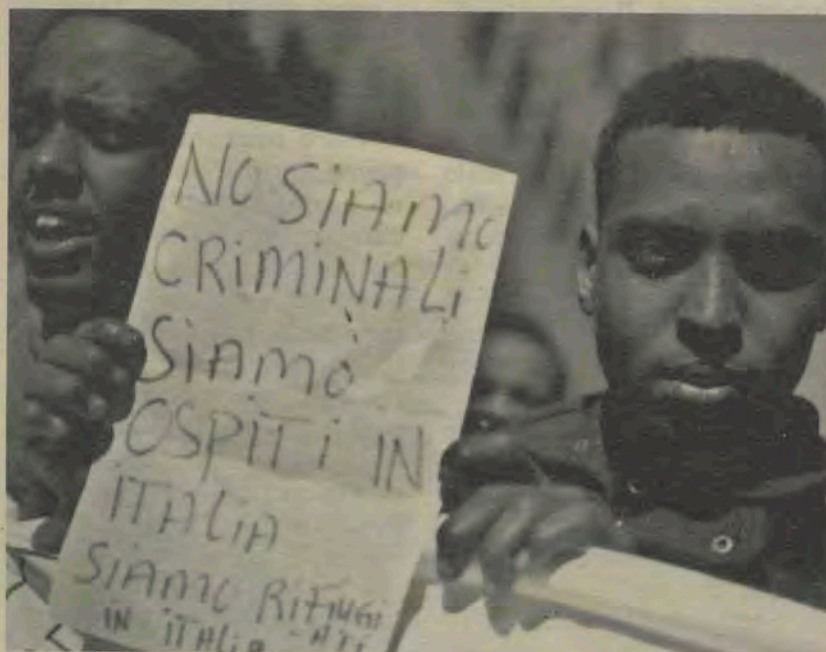 NO SiAMO
CRiMiNALi
SiAMÒ
OSPiTi IN
iTALiA
SiAMO RiFiUGi
IN iTALiA ATi